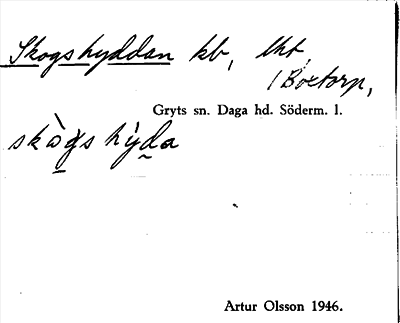 Skogshyddan kb, lht,
/ Boxtorp,
Gryts sn. Daga hd. Söderm. l.
skògs hýda
Artur Olsson 1946.